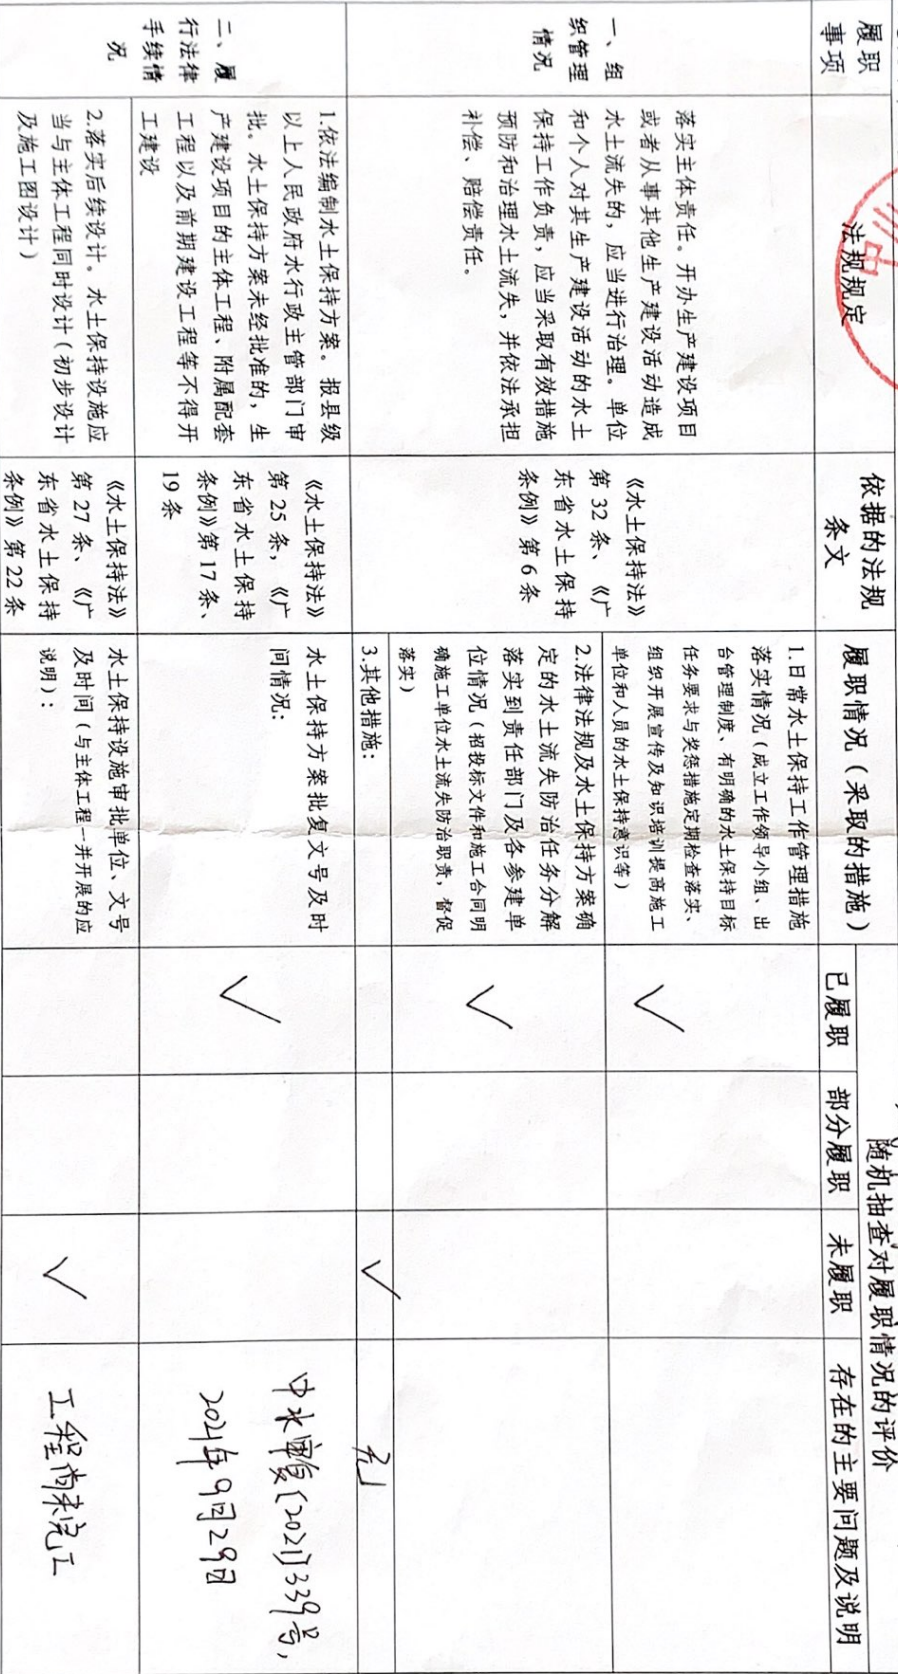 随机抽查对履职情况的评价
履职
事项
法规规定
依据的法规
条文
履职情况（采取的措施）
已履职
部分履职
未履职
存在的主要问题及说明
一、组
织管理
情况
落实主体责任。开办生产建设项目
或者从事其他生产建设活动造成
水土流失的，应当进行治理。单位
和个人对其生产建设活动的水土
保持工作负责，应当采取有效措施
预防和治理水土流失，并依法承担
补偿、赔偿责任。
《水土保持法》
第 32 条、《广
东省水土保持
条例》第 6 条
1.日常水土保持工作管理措施
落实情况（成立工作领导小组、出
台管理制度、有明确的水土保持目标
任务要求与奖惩措施定期检查落实、
组织开展宣传及知识培训提高施工
单位和人员的水土保持意识等）
✓
2.法律法规及水土保持方案确
定的水土流失防治任务分解
落实到责任部门及各参建单
位情况（招投标文件和施工合同明
确施工单位水土流失防治职责，督促
落实）
✓
3.其他措施：
✓
无
二、履
行法律
手续情
况
1.依法编制水土保持方案。报县级
以上人民政府水行政主管部门审
批。水土保持方案未经批准的，生
产建设项目的主体工程、附属配套
工程以及前期建设工程等不得开
工建设
《水土保持法》
第 25 条，《广
东省水土保持
条例》第 17 条、
19 条
水土保持方案批复文号及时
间情况：
✓
中水审复〔2021〕339号，
2021年9月29日
2.落实后续设计。水土保持设施应
当与主体工程同时设计（初步设计
及施工图设计）
《水土保持法》
第 27 条、《广
东省水土保持
条例》第 22 条
水土保持设施审批单位、文号
及时间（与主体工程一并开展的应
说明）：
✓
工程尚未完工